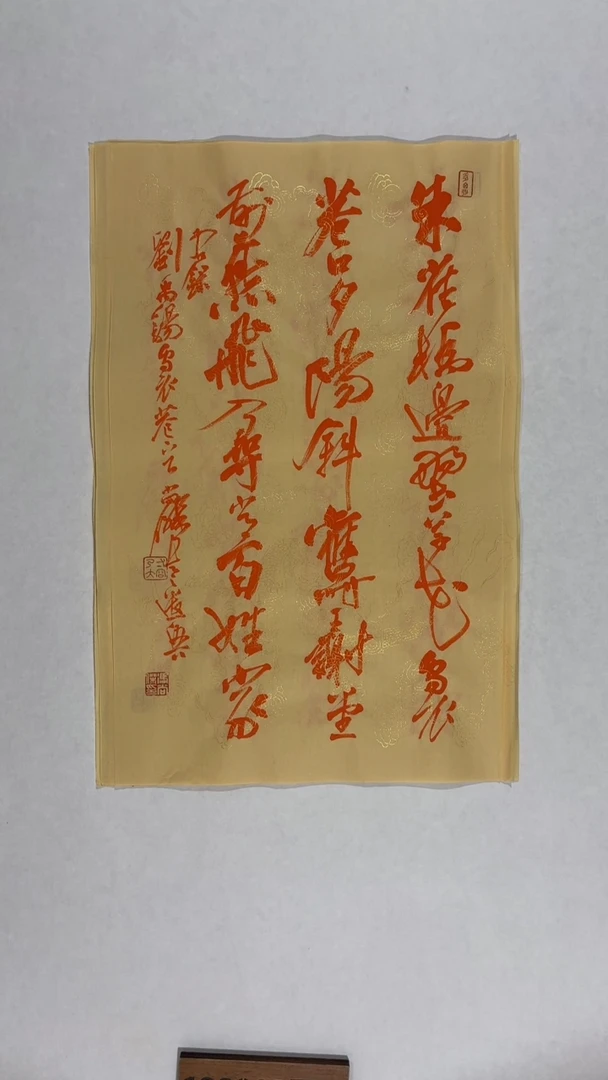 朱雀橋邊野草花烏衣
巷口夕陽斜舊時王謝堂
前燕飛入尋常百姓家
錄
劉禹錫烏衣巷